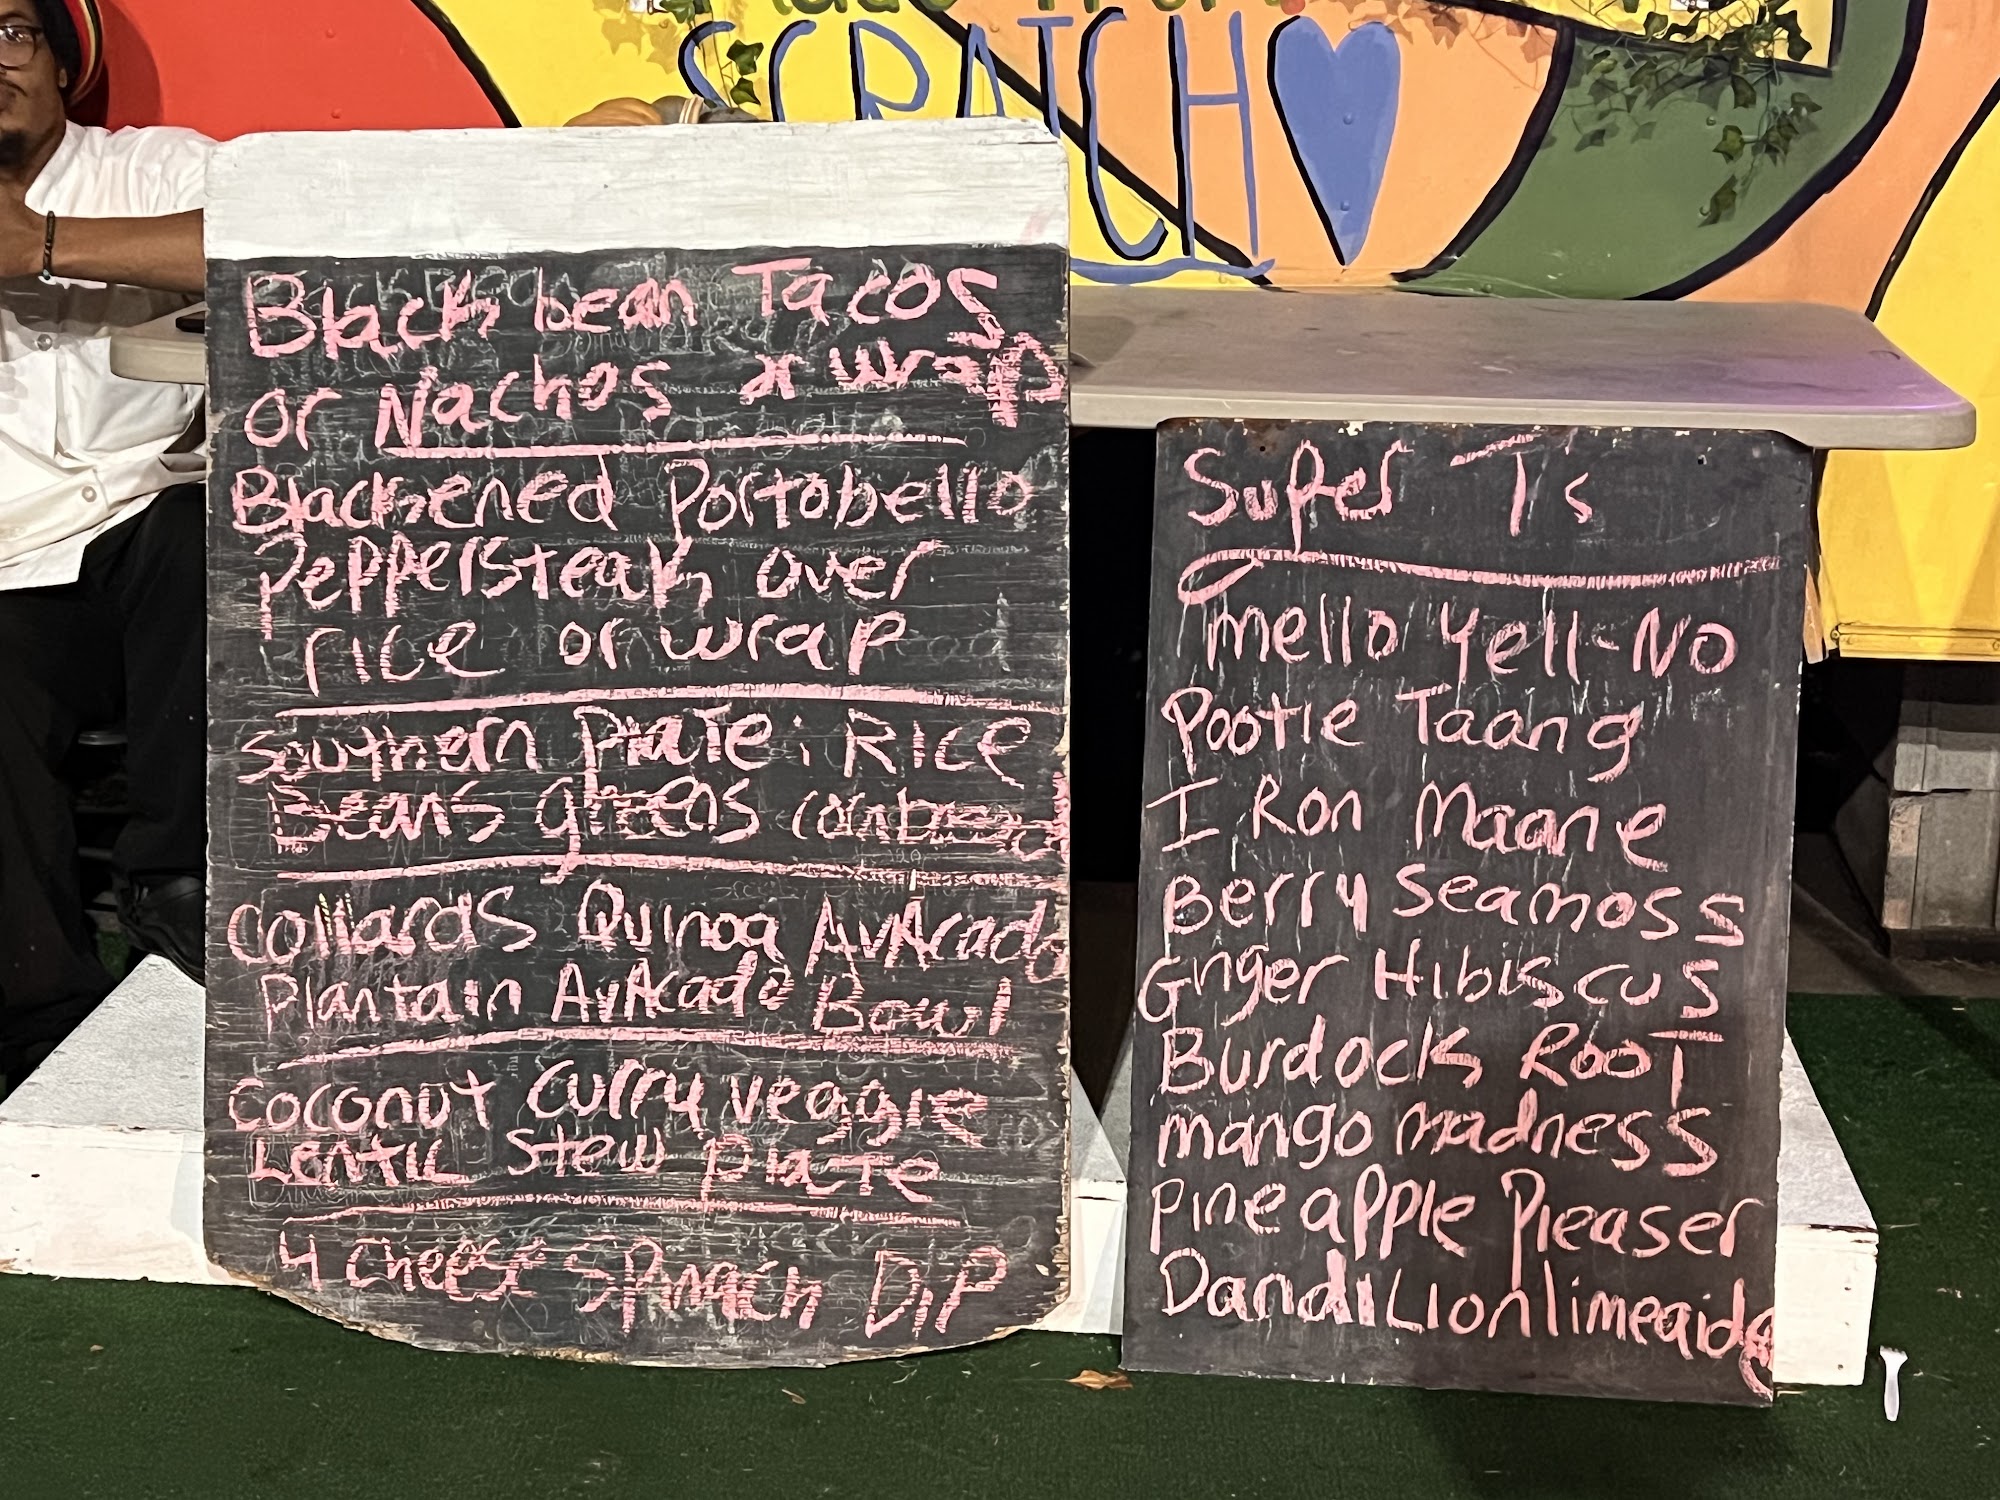 SCRATCH
Black bean Tacos
or Nachos or wrap
Blackened Portobello
Peppersteak over
rice or wrap
Southern Plate: Rice
Beans greens cornbread
Collards Quinoa AvAcado
Plantain AvAcado Bowl
Coconut curry veggie
Lentil stew plate
4 cheese Spinach Dip
Super T's
mello yell-No
Pootie Taang
I Ron Maane
Berry Seamoss
Ginger Hibiscus
Burdock Root
mango madness
pineapple Pleaser
DandiLion limeaide